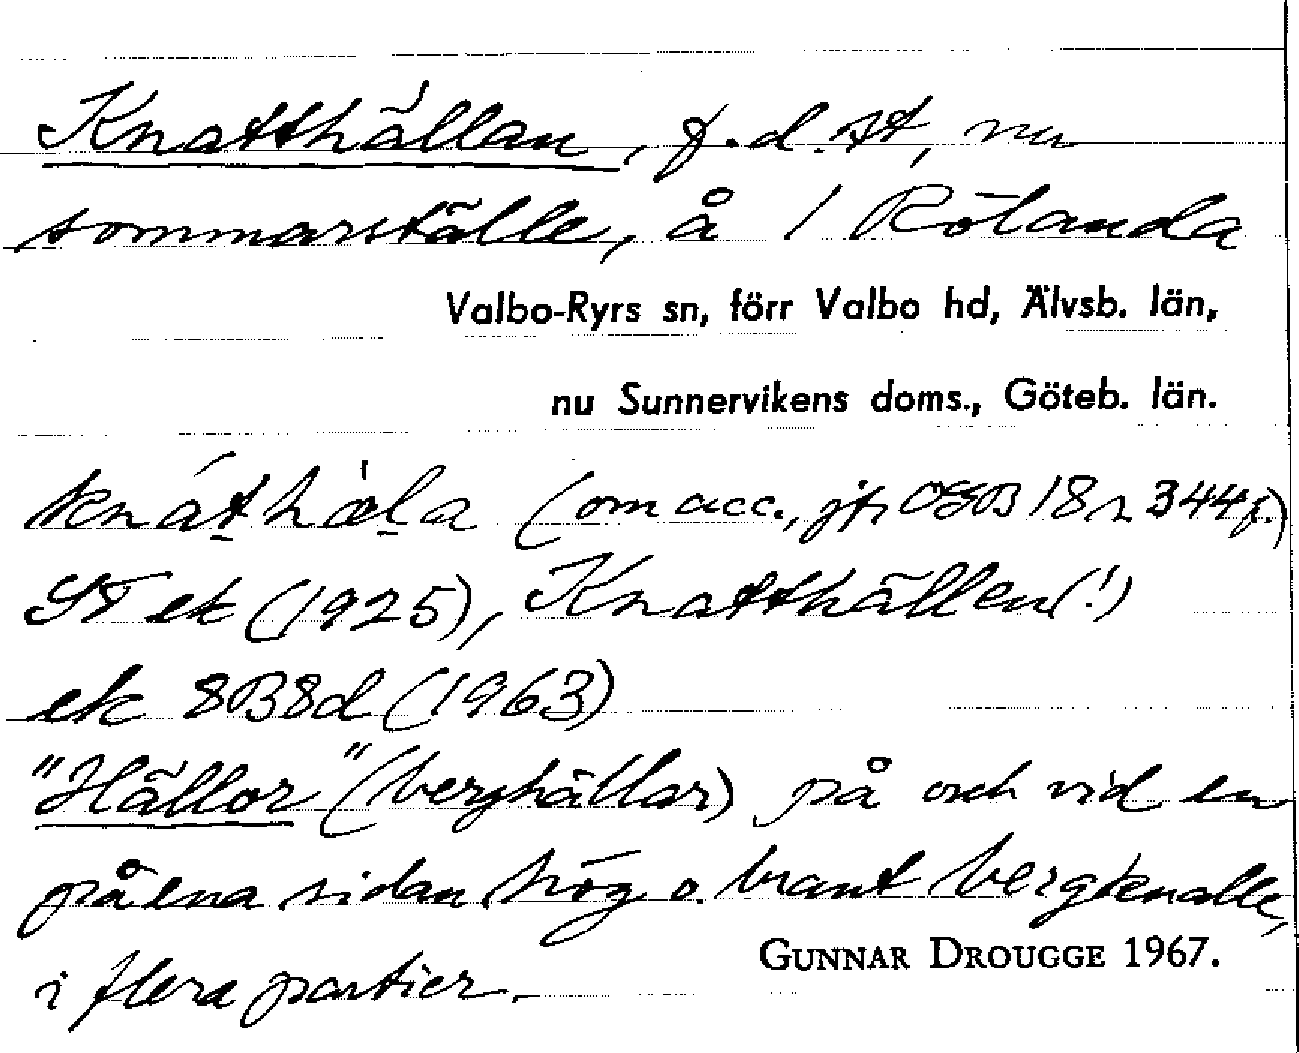 Knatthällan, f.d. st, nu
sommarställe, å 1 Rölanda
Valbo-Ryrs sn, förr Valbo hd, Älvsb. län,
nu Sunnervikens doms., Göteb. län.
knáṯhæ̀ḷa (om acc., jfr OGB 18 s 344 f.)
ST ek (1925), Knatthällen(!)
ek 8B8d (1963)
"Hällor" (berghällar) på och vid en
på ena sidan hög o. brant bergknalle,
i flera partier.
GUNNAR DROUGGE 1967.